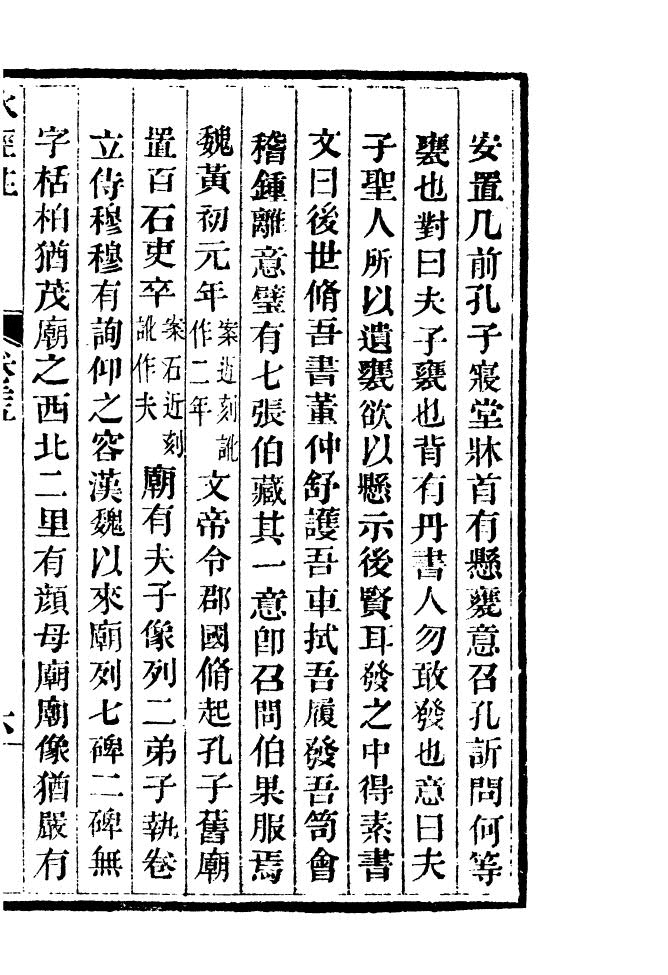 安置几前孔子寢堂牀首有懸甕意召孔訢問何等
甕也對曰夫子甕也背有丹書人勿敢發也意曰夫
子聖人所以遺甕欲以懸示後賢耳發之中得素書
文曰後世脩吾書董仲舒護吾車拭吾履發吾笥會
稽鍾離意璧有七張伯藏其一意卽召問伯果服焉
魏黃初元年案近刻訛作二年文帝令郡國脩起孔子舊廟
置百石吏卒案石近刻訛作夫廟有夫子像列二弟子執卷
立侍穆穆有詢仰之容漢魏以來廟列七碑二碑無
字栝柏猶茂廟之西北二里有顏母廟廟像猶嚴有
水經注
六